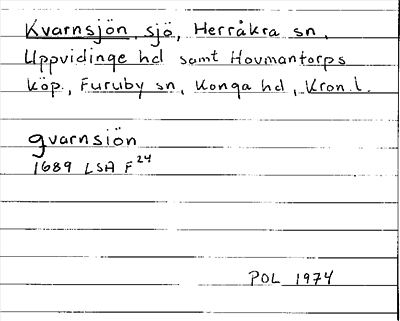 Kvarnsjön, sjö, Herråkra sn,
Uppvidinge hd samt Hovmantorps
köp., Furuby sn, Konga hd, Kron. l.
qvarnsiön
1689 LSA F 24
POL 1974